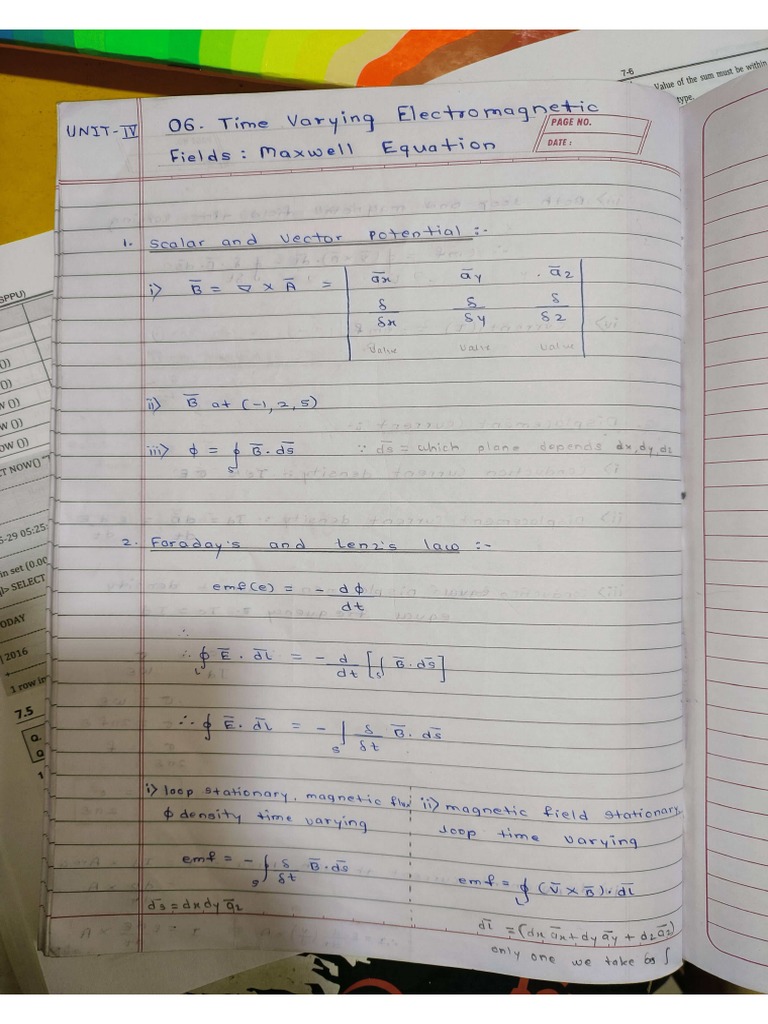 7-6
Value of the sum must be within
type.
UNIT-IV
06. Time Varying Electromagnetic
Fields: Maxwell Equation
PAGE NO.
DATE:
1. Scalar and Vector Potential :-
i> B̅ = ∇ × A̅ = | a̅x a̅y . a̅z |
| δ/δx δ/δy δ/δz |
| Value Value Value |
ii> B̅ at (-1, 2, 5)
iii> ϕ = ∮s B̅ . ds̅ ∵ ds̅ = which plane depends dx, dy, dz
2. Faraday's and Lenz's law :-
emf(e) = - dϕ/dt
∴
∴ ∮L E̅ . dl̅ = - d/dt [∫s B̅ . ds̅]
∴ ∮ E̅ . dl̅ = - ∫s δ/δt B̅ . ds̅
i> loop stationary, magnetic flux
ϕ density time varying
emf = - ∮s δ/δt B̅ . ds̅
ds̅ = dx dy a̅z
ii> magnetic field stationary,
loop time varying
emf = ∮ (V̅ × B̅) . dl̅
dl̅ = (dx a̅x + dy a̅y + dz a̅z)
only one we take as ∫
SPPU)
())
())
W ())
OW ())
CT NOW()
-29 05:25:
in set (0.00
> SELECT
ODAY
2016
1 row in
7.5
Q.
Q
1